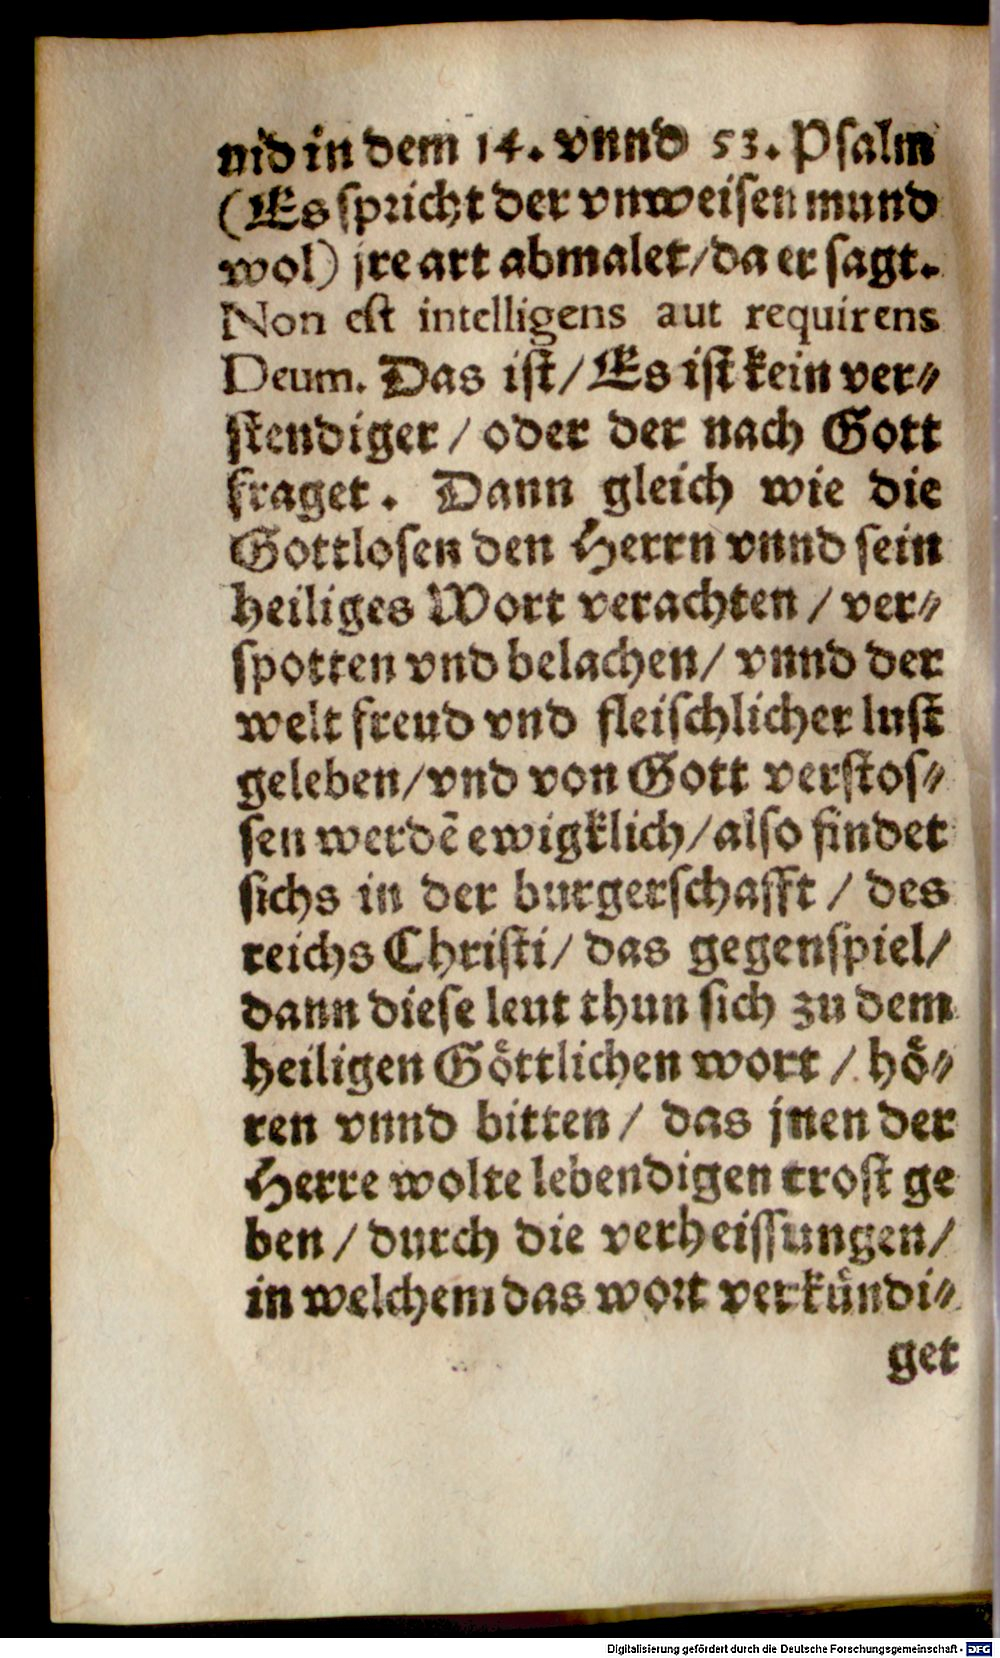 uid in dem 14. vnnd 53. Psalm
(Es spricht der vnweisen mund
wol) jre art abmalet/da er sagt.
Non est intelligens aut requirens
Deum. Das ist/Es ist kein ver⸗
stendiger/oder der nach Gott
fraget. Dann gleich wie die
Gottlosen den Herrn vnnd sein
heiliges Wort verachten/ver⸗
spotten vnd belachen/vnnd der
welt freud vnd fleischlicher lust
geleben/vnd von Gott verstos⸗
sen werdẽ ewigklich/also findet
sichs in der burgerschafft/des
reichs Christi/das gegenspiel/
dann diese leut thun sich zu dem
heiligen Göttlichen wort/hö⸗
ren vnnd bitten/das jnen der
Herre wolte lebendigen trost ge
ben/durch die verheissungen/
in welchem das wort verkündi⸗
get
Digitalisierung gefördert durch die Deutsche Forschungsgemeinschaft - DFG